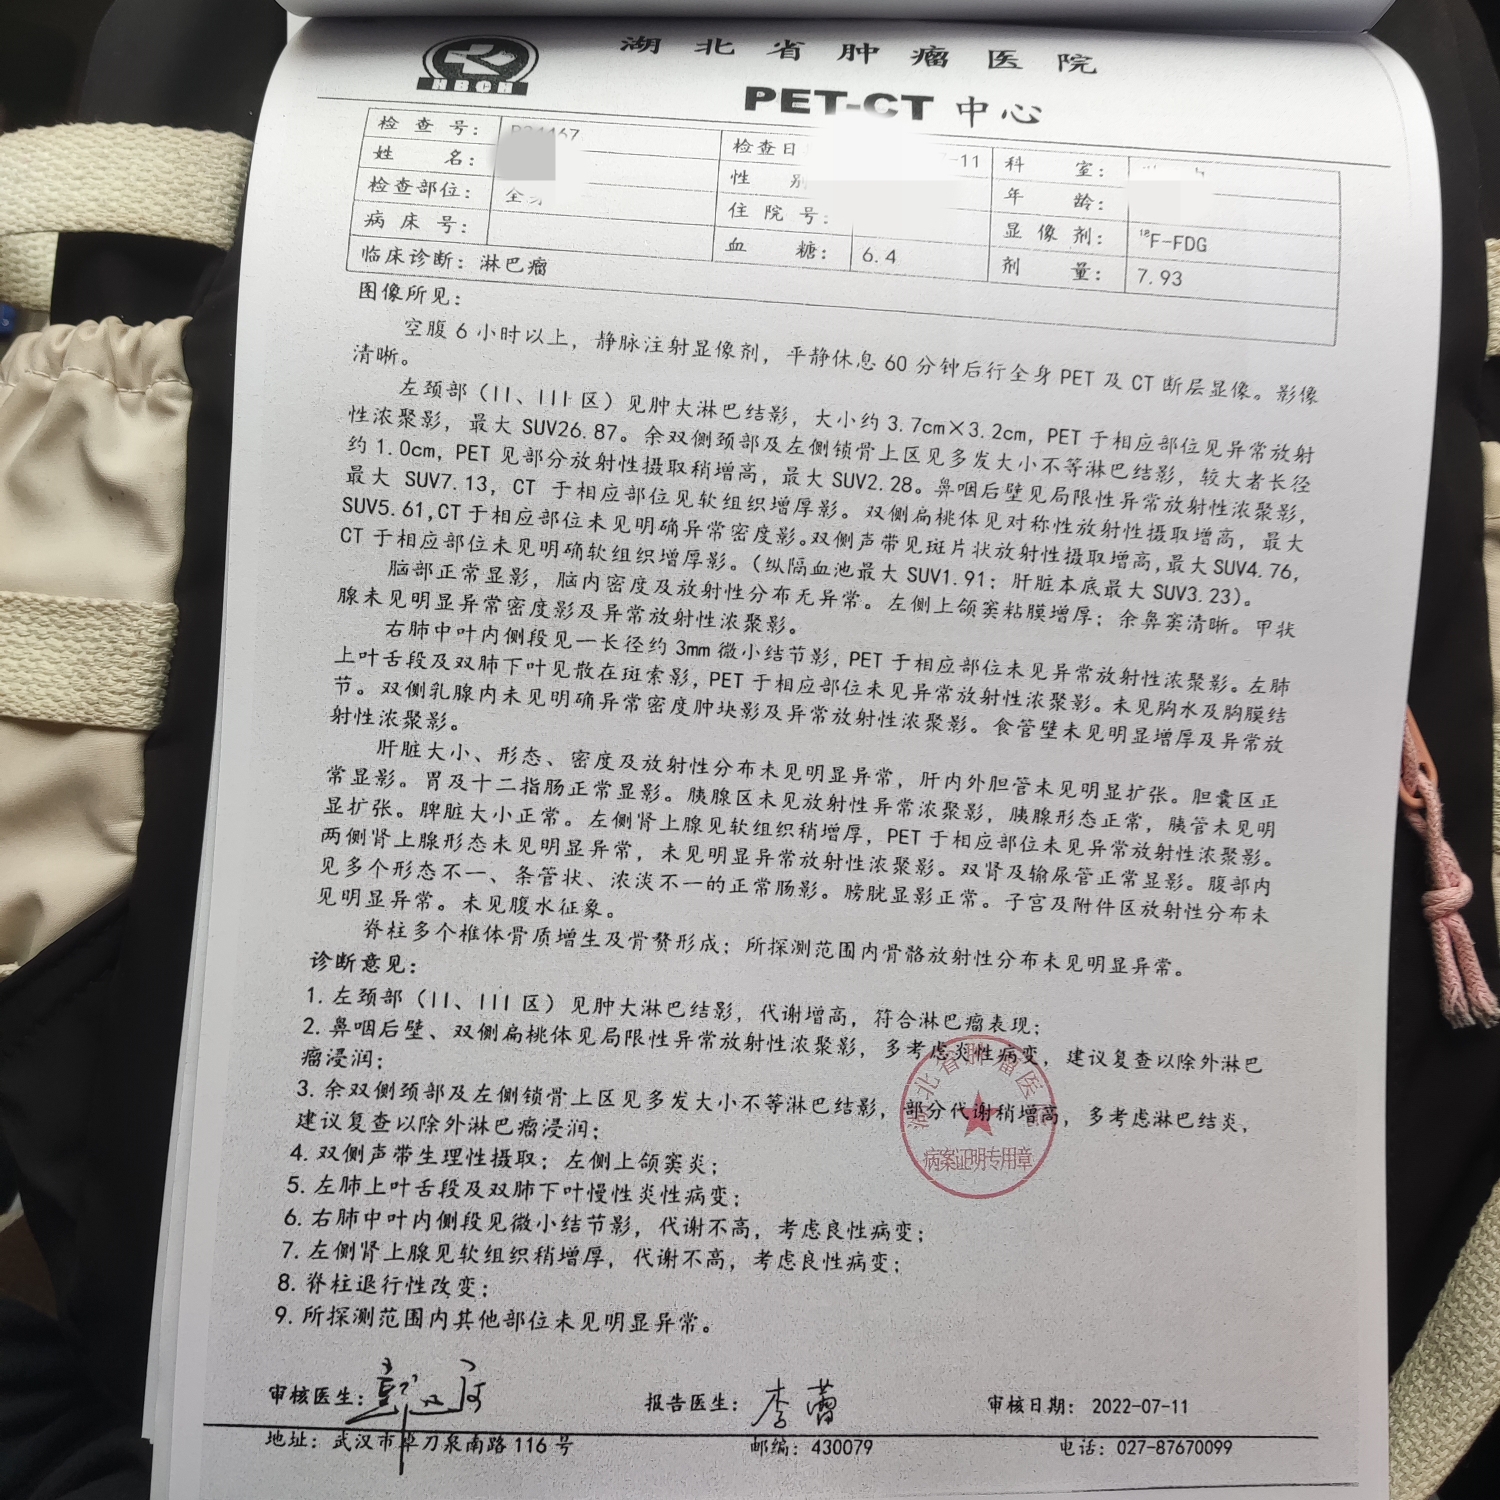 HBCH
湖北省肿瘤医院
PET-CT 中心
检查号：
姓名：
检查部位： 全
病床号：
检查日 -11
性别
住院号：
血糖： 6.4
科室：
年龄：
显像剂： ¹⁸F-FDG
剂量： 7.93
临床诊断：淋巴瘤
图像所见：
空腹 6 小时以上，静脉注射显像剂，平静休息 60 分钟后行全身 PET 及 CT 断层显像。影像
清晰。
左颈部（II、III 区）见肿大淋巴结影，大小约 3.7cm×3.2cm，PET 于相应部位见异常放射
性浓聚影，最大 SUV26.87。余双侧颈部及左侧锁骨上区见多发大小不等淋巴结影，较大者长径
约 1.0cm，PET 见部分放射性摄取稍增高，最大 SUV2.28。鼻咽后壁见局限性异常放射性浓聚影，
最大 SUV7.13，CT 于相应部位见软组织增厚影。双侧扁桃体见对称性放射性摄取增高，最大
SUV5.61,CT 于相应部位未见明确异常密度影。双侧声带见斑片状放射性摄取增高,最大 SUV4.76,
CT 于相应部位未见明确软组织增厚影。（纵隔血池最大 SUV1.91；肝脏本底最大 SUV3.23）。
脑部正常显影，脑内密度及放射性分布无异常。左侧上颌窦粘膜增厚；余鼻窦清晰。甲状
腺未见明显异常密度影及异常放射性浓聚影。
右肺中叶内侧段见一长径约 3mm 微小结节影，PET 于相应部位未见异常放射性浓聚影。左肺
上叶舌段及双肺下叶见散在斑索影，PET 于相应部位未见异常放射性浓聚影。未见胸水及胸膜结
节。双侧乳腺内未见明确异常密度肿块影及异常放射性浓聚影。食管壁未见明显增厚及异常放
射性浓聚影。
肝脏大小、形态、密度及放射性分布未见明显异常，肝内外胆管未见明显扩张。胆囊区正
常显影。胃及十二指肠正常显影。胰腺区未见放射性异常浓聚影，胰腺形态正常，胰管未见明
显扩张。脾脏大小正常。左侧肾上腺见软组织稍增厚，PET 于相应部位未见异常放射性浓聚影。
两侧肾上腺形态未见明显异常，未见明显异常放射性浓聚影。双肾及输尿管正常显影。腹部内
见多个形态不一、条管状、浓淡不一的正常肠影。膀胱显影正常。子宫及附件区放射性分布未
见明显异常。未见腹水征象。
脊柱多个椎体骨质增生及骨赘形成；所探测范围内骨骼放射性分布未见明显异常。
诊断意见：
1. 左颈部（II、III 区）见肿大淋巴结影，代谢增高，符合淋巴瘤表现；
2. 鼻咽后壁、双侧扁桃体见局限性异常放射性浓聚影，多考虑炎性病变，建议复查以除外淋巴
瘤浸润；
3. 余双侧颈部及左侧锁骨上区见多发大小不等淋巴结影，部分代谢稍增高，多考虑淋巴结炎，
建议复查以除外淋巴瘤浸润；
4. 双侧声带生理性摄取；左侧上颌窦炎；
5. 左肺上叶舌段及双肺下叶慢性炎性病变；
6. 右肺中叶内侧段见微小结节影，代谢不高，考虑良性病变；
7. 左侧肾上腺见软组织稍增厚，代谢不高，考虑良性病变；
8. 脊柱退行性改变；
9. 所探测范围内其他部位未见明显异常。
湖北省肿瘤医
病案证明专用章
审核医生：
报告医生：李蕾
审核日期： 2022-07-11
地址：武汉市卓刀泉南路 116 号
邮编：430079
电话：027-87670099